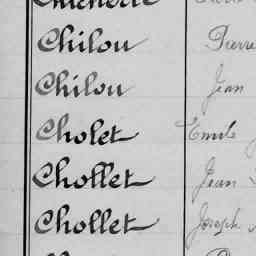 Chilou Pierre
Chilou Jean
Cholet Emile
Chollet Jean
Chollet Joseph